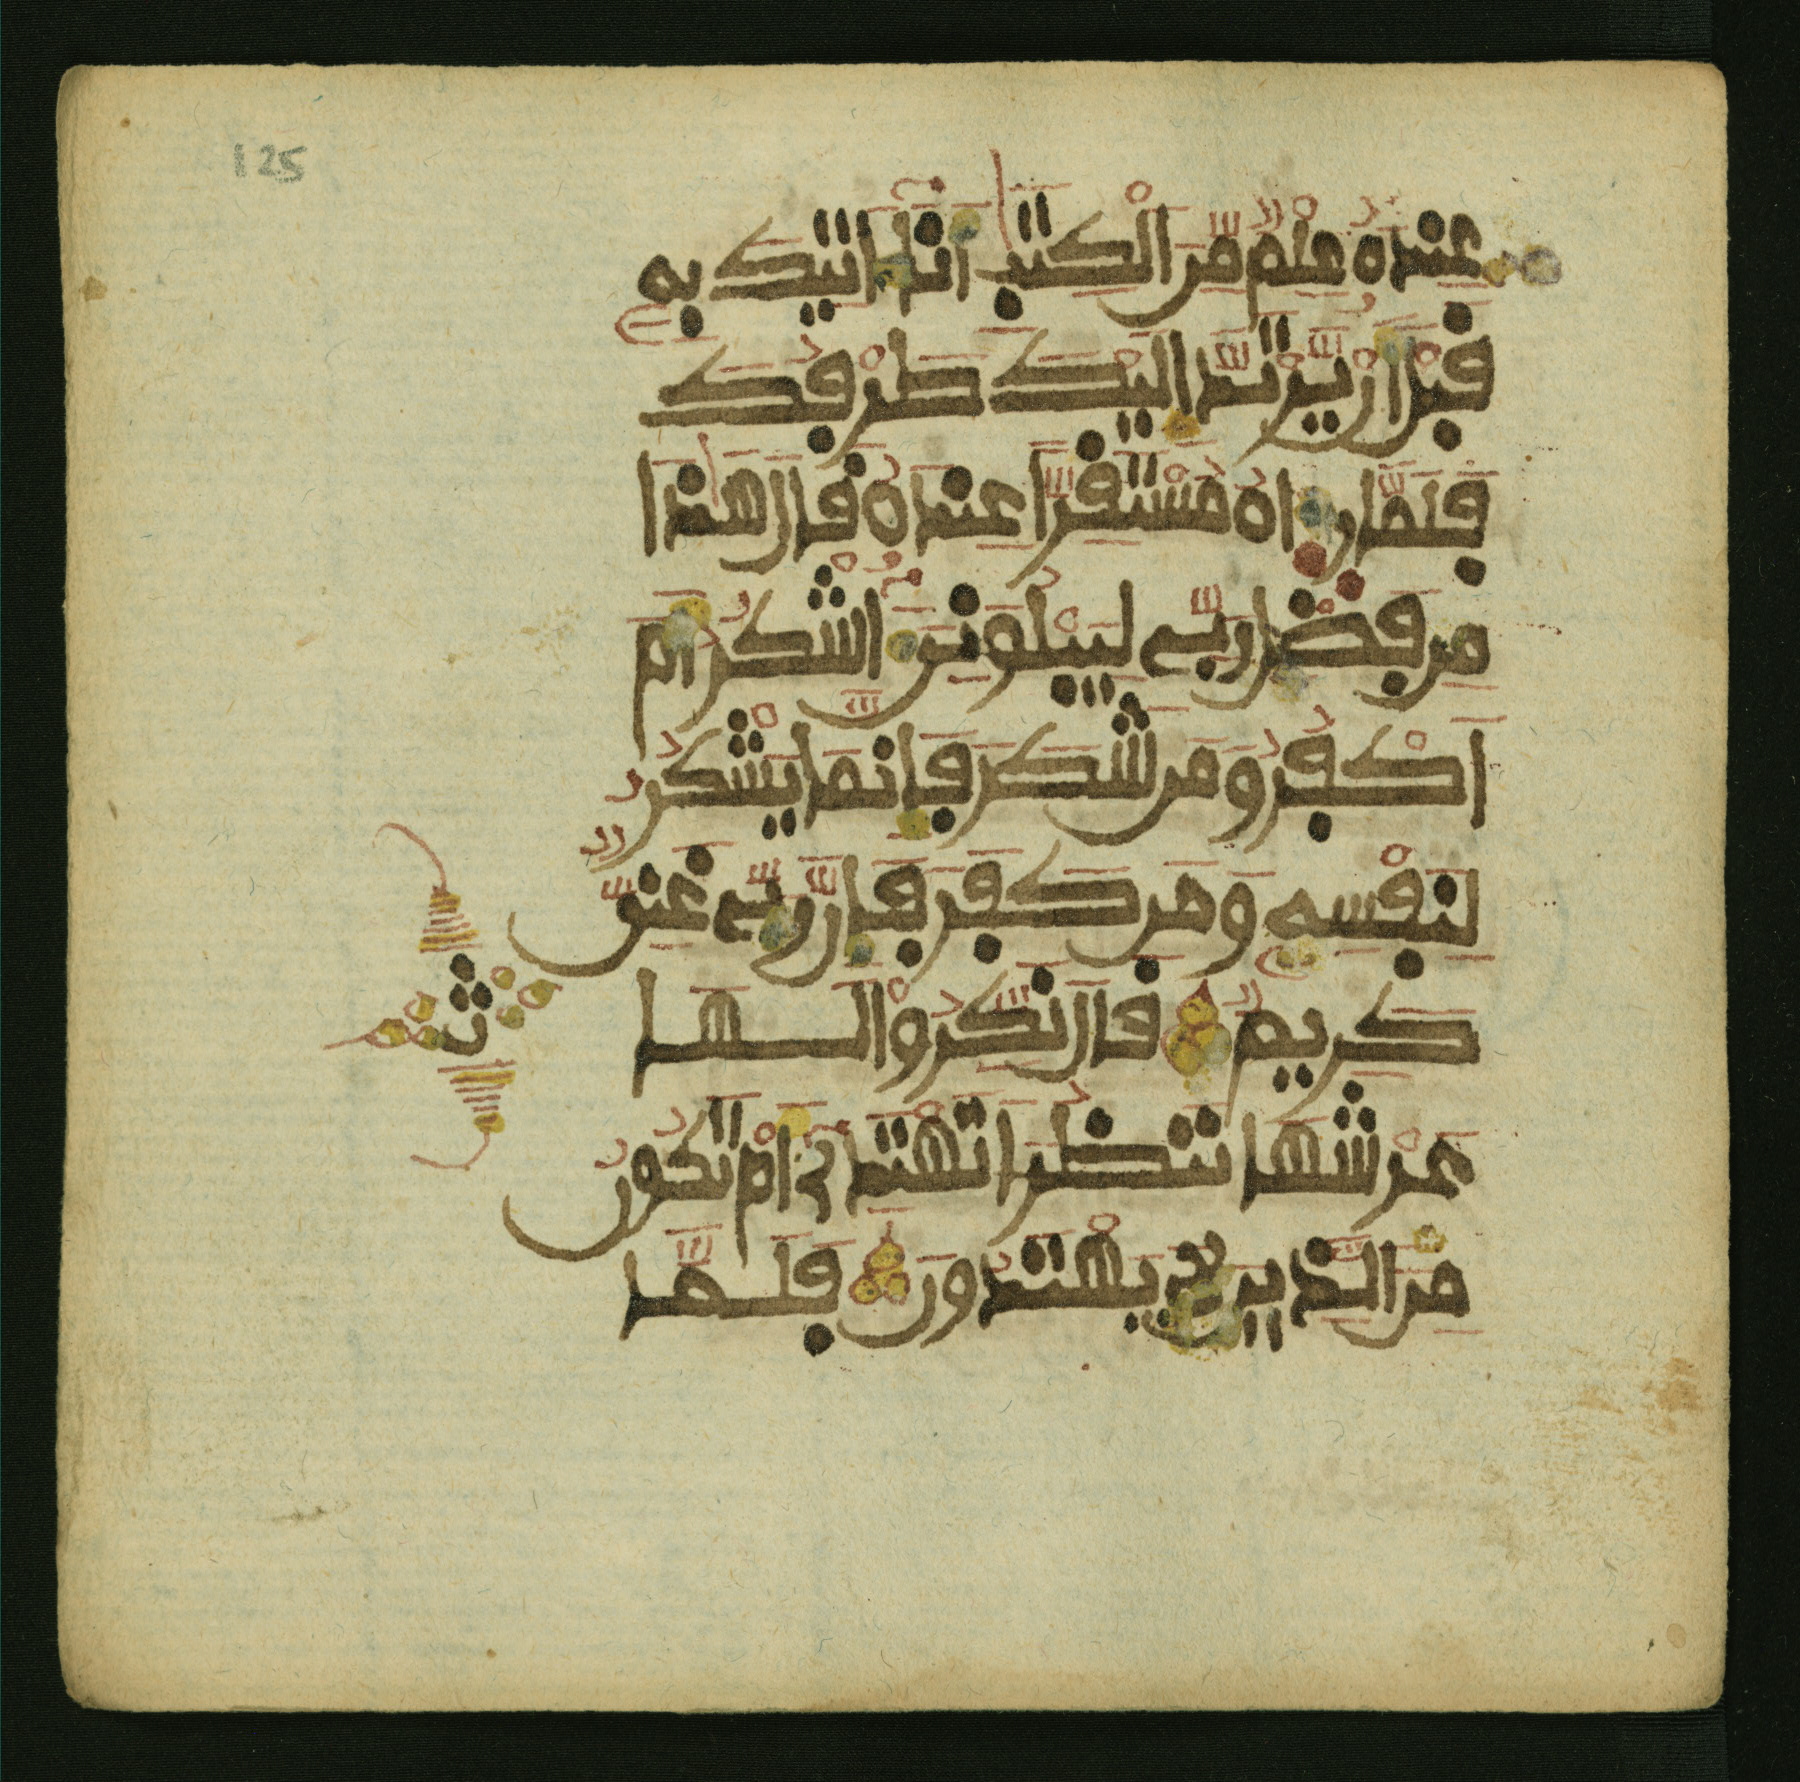 125
عنده علم من الكتب انا اتيك به
قبل ان يرتد اليك طرفك
فلما راه مستقرا عنده قال هذا
من فضل ربي ليبلوني اشكر ام
اكفر ومن شكر فانما يشكر
لنفسه ومن كفر فان ربي غني
كريم قال نكروا لها
عرشها ننظر اتهتدي ام تكون
من الذين لا يهتدون فلما
ث